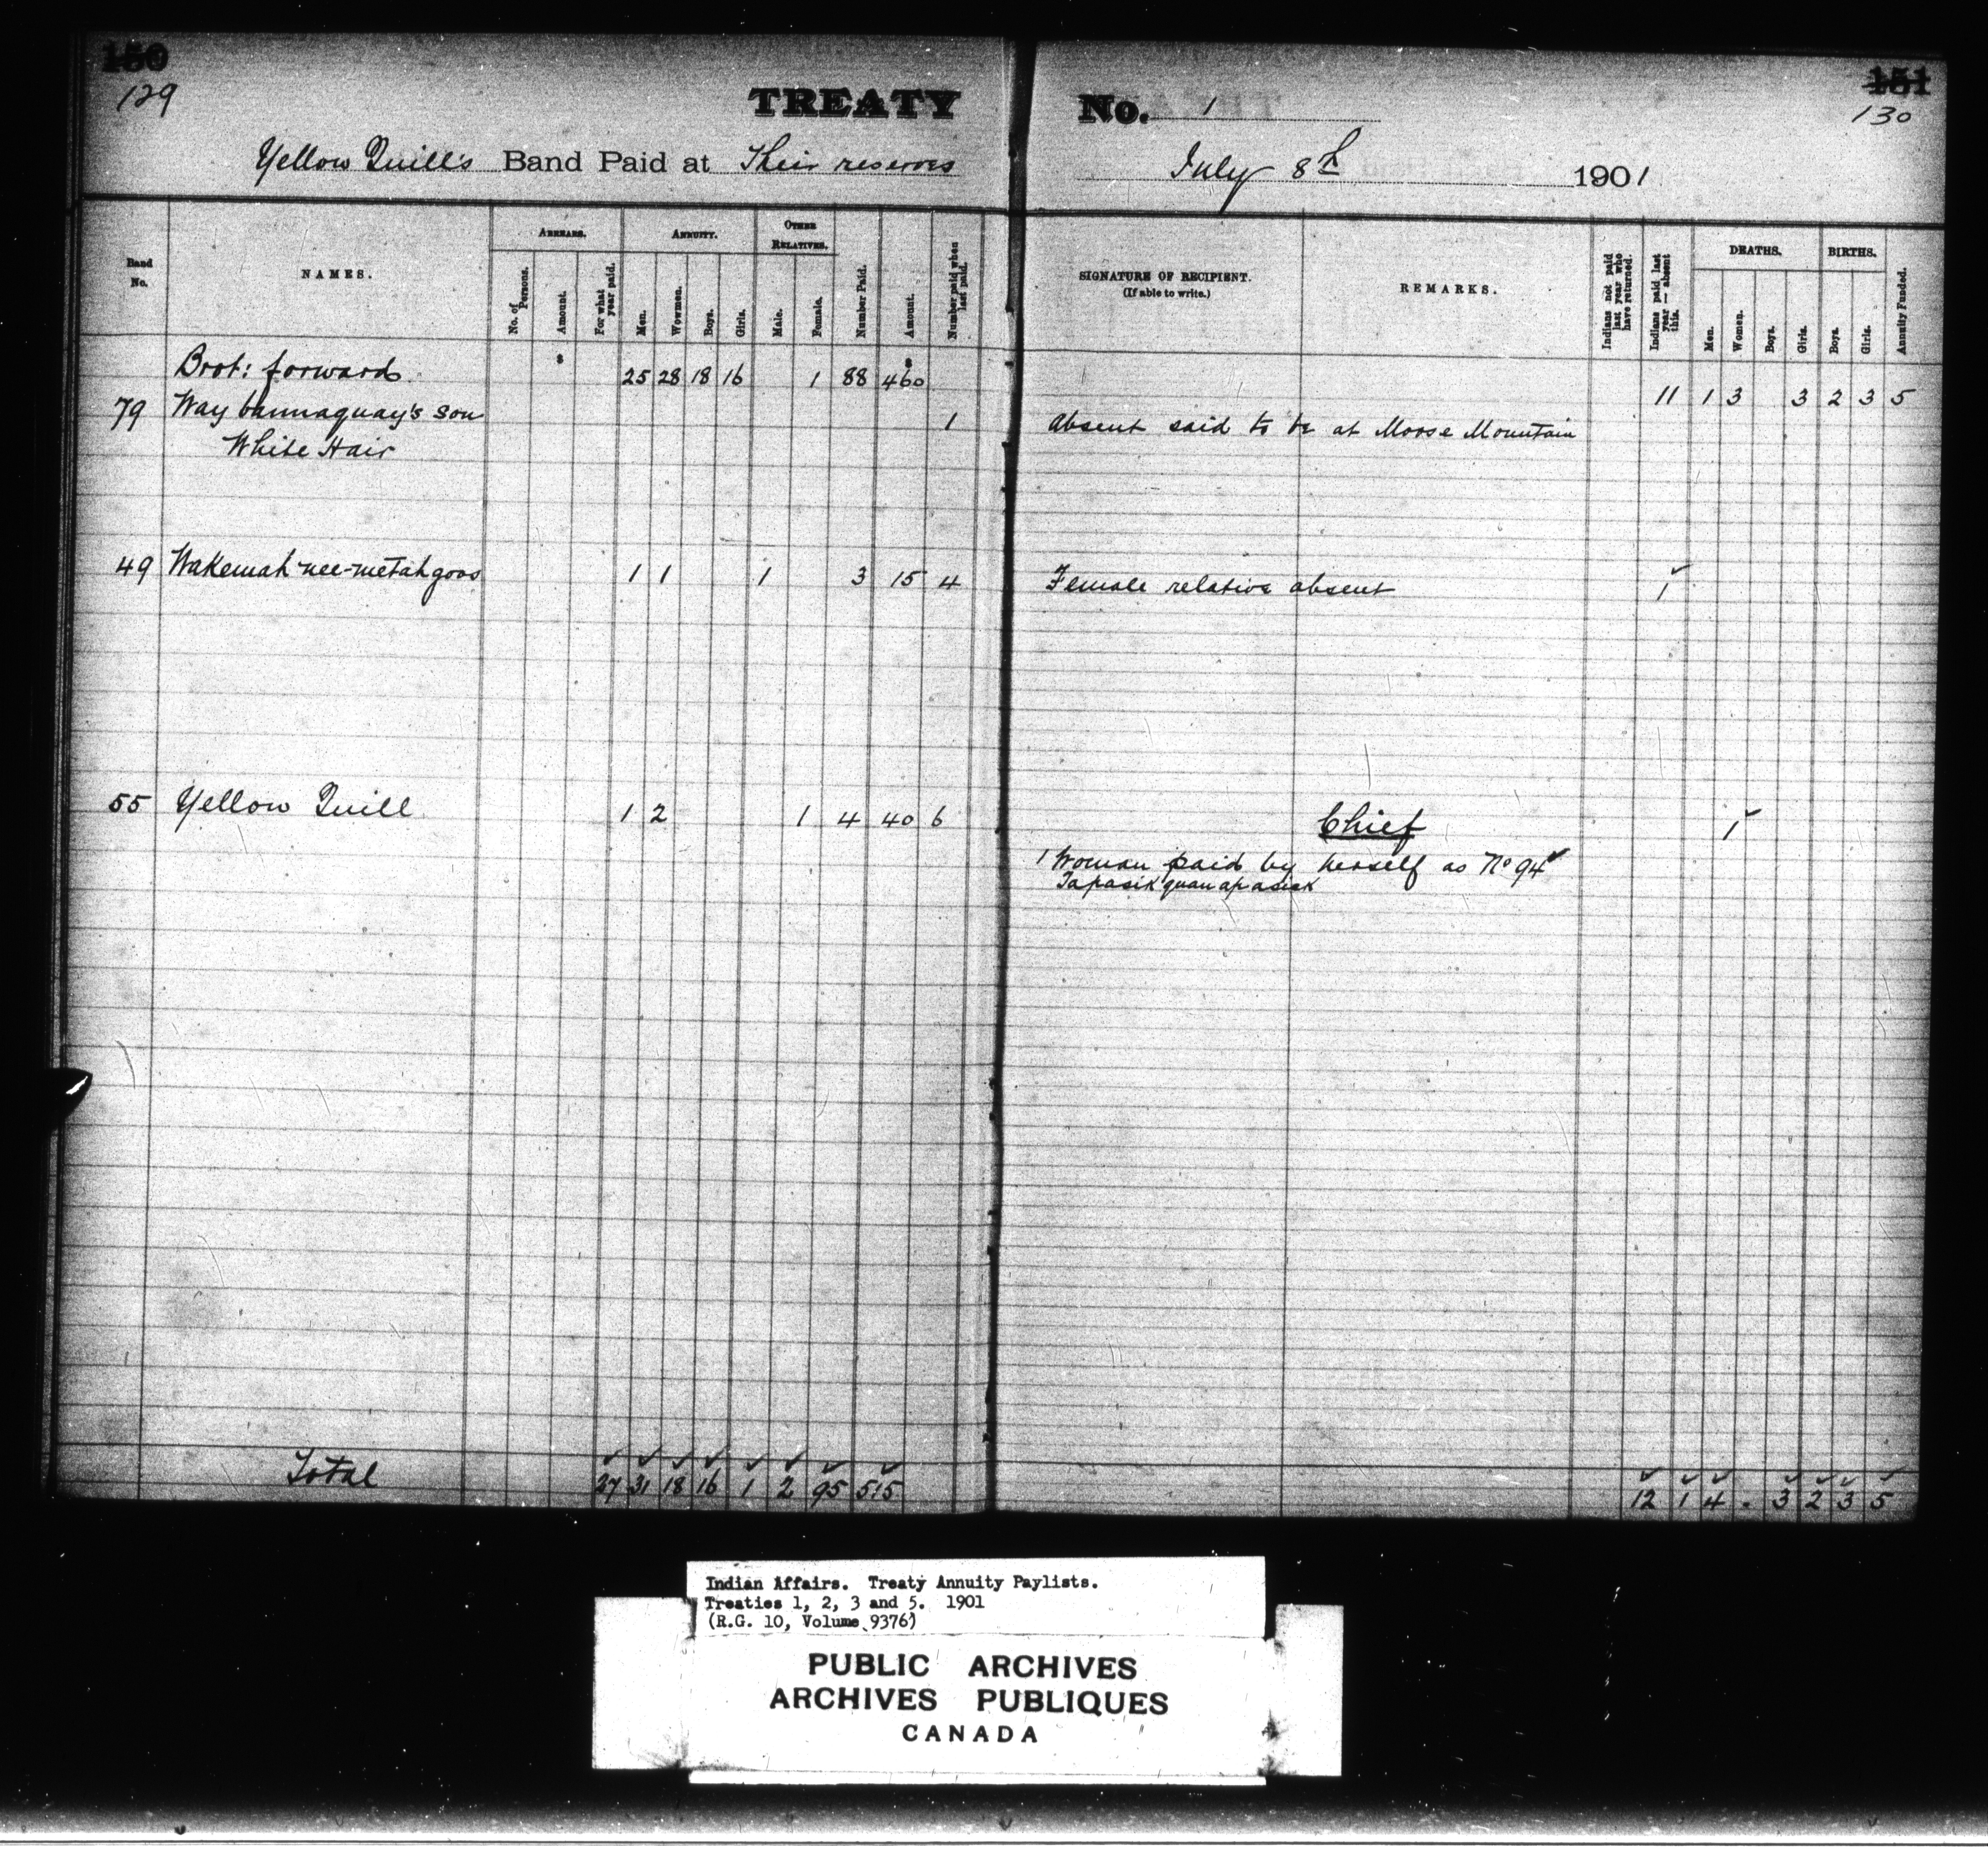 150 151
129 130
TREATY No. 1
Yellow Quill's Band Paid at Their reserves July 8th 1901
Band No. NAMES. ARREARS. ANNUITY. OTHER RELATIVES. Number Paid. Amount. Number paid when last paid. SIGNATURE OF RECIPIENT. (If able to write.) REMARKS. Indians not paid last year who have returned. Indians paid last year — absent this. DEATHS. BIRTHS. Annuity Funded.
No. of Persons. Amount. For what year paid. Men. Wowmen. Boys. Girls. Male. Female. Men. Women. Boys. Girls. Boys. Girls.
Brot: forward 25 28 18 16 1 88 $ 460 11 1 3 3 2 3 5
79 Way bannaquay's son 1 Absent said to be at Moose Mountain
White Hair
49 Wakemah-nee-metahgoos 1 1 1 3 15 4 Female relative absent 1
55 Yellow Quill 1 2 1 4 40 6 Chief 1
1 Woman paid by herself as No 94
Tapasikquanapasick
Total 27 31 18 16 1 2 95 515 12 1 4 . 3 2 3 5
Indian Affairs. Treaty Annuity Paylists.
Treaties 1, 2, 3 and 5. 1901
(R.G. 10, Volume 9376)
PUBLIC ARCHIVES
ARCHIVES PUBLIQUES
CANADA